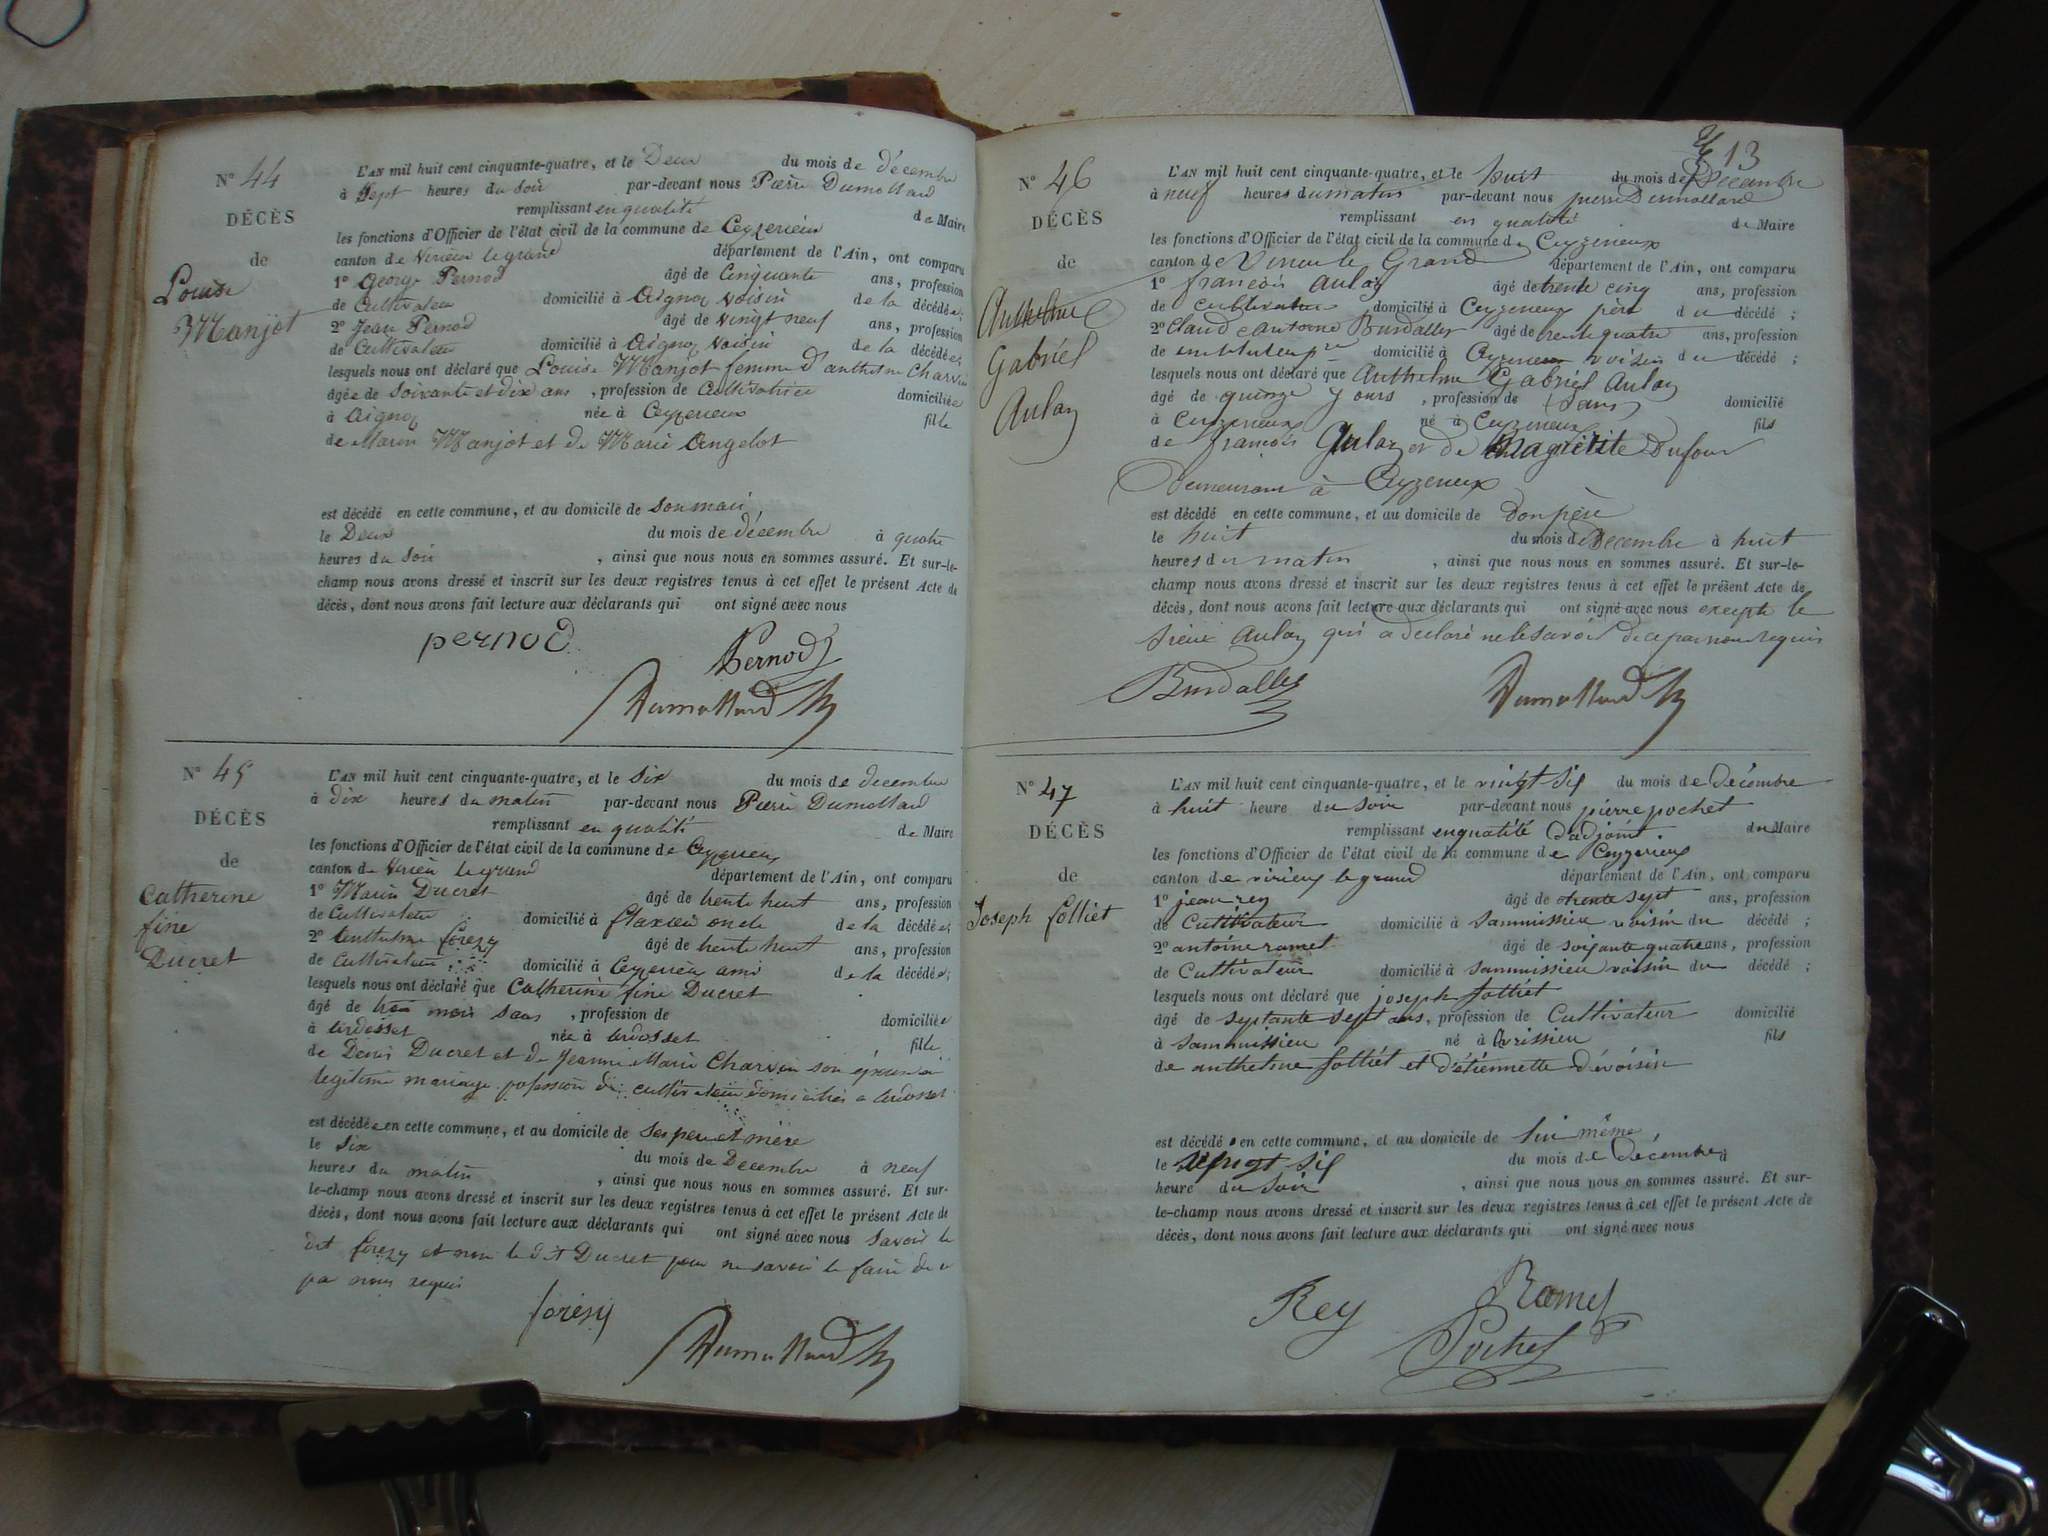 N° 44
DÉCÈS
de
Louise
Manjot
L'AN mil huit cent cinquante-quatre, et le Deux du mois de décembre
à Sept heures du Soir par-devant nous Pierre Dumollard
remplissant en qualité de Maire
les fonctions d'Officier de l'état civil de la commune de Ceyzerieux
canton de Virieu le grand département de l'Ain, ont comparu
1° George Pernod âgé de Cinquante ans, profession
de Cultivateur domicilié à Aignoz voisin de la décédée;
2° Jean Pernod âgé de vingt neuf ans, profession
de Cultivateur domicilié à Aignoz voisin de la décédée;
lesquels nous ont déclaré que Louise Manjot femme d'anthelme Charvin
âgée de Soixante et dix ans, profession de Cultivatrice domiciliée
à Aignoz née à Ceyzerieux fille
de Marin Manjot et de Marie Angelot
est décédé en cette commune, et au domicile de son mari
le Deux du mois de décembre à quatre
heures du Soir, ainsi que nous nous en sommes assuré. Et sur-le-
champ nous avons dressé et inscrit sur les deux registres tenus à cet effet le présent Acte de
décès, dont nous avons fait lecture aux déclarants qui ont signé avec nous
pernod Pernod
Dumollard
N° 45
DÉCÈS
de
Catherine
fine
Ducret
L'AN mil huit cent cinquante-quatre, et le Six du mois de decembre
à dix heures du matin par-devant nous Pierre Dumollard
remplissant en qualité de Maire
les fonctions d'Officier de l'état civil de la commune de Ceyzerieux
canton de Virieu le grand département de l'Ain, ont comparu
1° Marin Ducret âgé de trente huit ans, profession
de Cultivateur domicilié à flaxieu oncle de la décédée;
2° Anthelme forezy âgé de trente huit ans, profession
de Cultivateur domicilié à Ceyzerieu ami de la décédée;
lesquels nous ont déclaré que Catherine fine Ducret
âgé de trois mois sans, profession de domiciliée
à Ardosset née à Ardosset fille
de Denis Ducret et de Jeanne Marie Charvin son épouse
legitime mariage profession de cultivateur domiciliés a Ardosset
est décédée en cette commune, et au domicile de Ses pere et mère
le Six du mois de Decembre à neuf
heures du matin, ainsi que nous nous en sommes assuré. Et sur-
le-champ nous avons dressé et inscrit sur les deux registres tenus à cet effet le présent Acte de
décès, dont nous avons fait lecture aux déclarants qui ont signé avec nous Savoir le
dit forezy et non le dit Ducret pour ne savoir le faire de ce
par nous requis
forésy
Dumollard
13
N° 46
DÉCÈS
de
Anthelme
Gabriel
Aulaz
L'AN mil huit cent cinquante-quatre, et le huit du mois de Décembre
à neuf heures du matin par-devant nous pierre Dumollard
remplissant en qualité de Maire
les fonctions d'Officier de l'état civil de la commune de Ceyzerieux
canton de Virieu le Grand département de l'Ain, ont comparu
1° françois Aulaz âgé de trente cinq ans, profession
de cultivateur domicilié à Ceyzerieux père du décédé;
2° Claude Antoine Burdallet âgé de trente quatre ans, profession
de instituteur domicilié à Ceyzerieux voisin du décédé;
lesquels nous ont déclaré que Anthelme Gabriel Aulaz
âgé de quinze jours, profession de Sans domicilié
à Ceyzerieux né à Ceyzerieux fils
de françois Aulaz et de Magritite Dufour
Demeurant à Ceyzerieux
est décédé en cette commune, et au domicile de Son père
le huit du mois de Decembre à huit
heures du matin, ainsi que nous nous en sommes assuré. Et sur-le-
champ nous avons dressé et inscrit sur les deux registres tenus à cet effet le présent Acte de
décès, dont nous avons fait lecture aux déclarants qui ont signé avec nous excepté le
Sieur Aulaz qui a déclaré ne le savoir de ce par nous requis
Burdallet Dumollard
N° 47
DÉCÈS
de
Joseph folliet
L'AN mil huit cent cinquante-quatre, et le vingt Six du mois de Décembre
à huit heure du Soir par-devant nous pierre pochet
remplissant en qualité d'adjoint. du Maire
les fonctions d'Officier de l'état civil de la commune de Ceyzerieux
canton de virieux le grand département de l'Ain, ont comparu
1° jean rey âgé de trente sept ans, profession
de Cultivateur domicilié à Sammissieu voisin du décédé;
2° antoine ramel âgé de soixante quatre ans, profession
de Cultivateur domicilié à Sammissieu voisin du décédé;
lesquels nous ont déclaré que joseph folliet
âgé de septante sept ans, profession de Cultivateur domicilié
à Sammissieu né à fils
de anthelme folliet et d'étiennette dévoisin
est décédé en cette commune, et au domicile de lui même,
le vingt Six du mois de Décembre à
heure du Soir, ainsi que nous nous en sommes assuré. Et sur-
le-champ nous avons dressé et inscrit sur les deux registres tenus à cet effet le présent Acte de
décès, dont nous avons fait lecture aux déclarants qui ont signé avec nous
Rey Ramel
Pochet